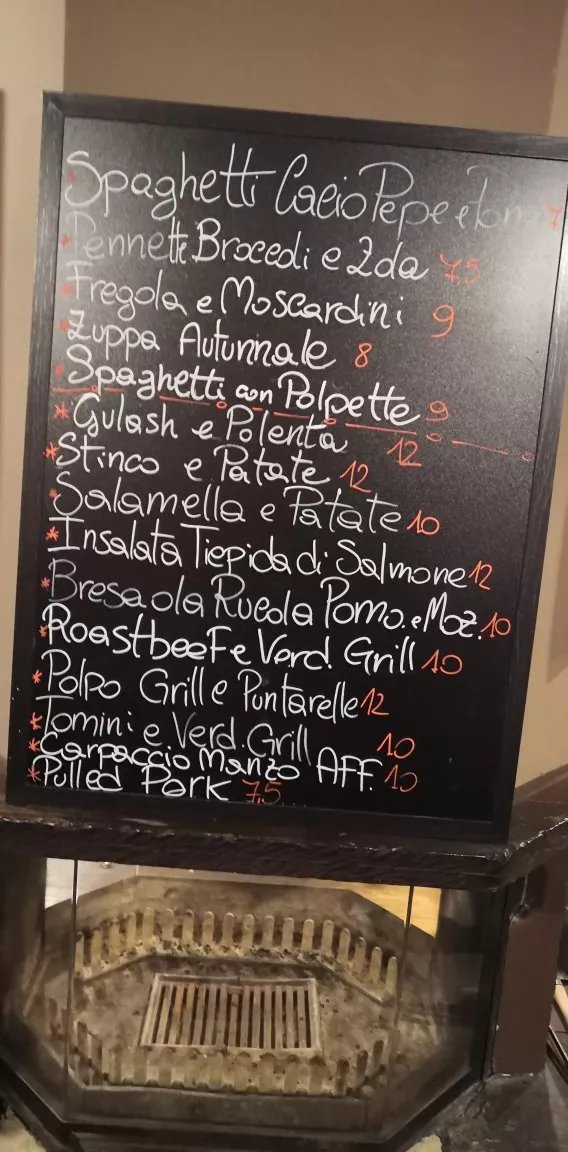 Spaghetti Cacio Pepe e 7
* Pennette Broccoli e Zola 7,5
* Fregola e Moscardini 9
* Zuppa Autunnale 8
* Spaghetti con Polpette 9
* Gulash e Polenta 12
* Stinco e Patate 12
* Salamella e Patate 10
* Insalata Tiepida di Salmone 12
* Bresaola Rucola Pomo. e Moz. 10
* Roastbeef e Verd. Grill 10
* Polpo Grill e Puntarelle 12
* Tomini e Verd. Grill 10
* Carpaccio Manzo AFF. 10
* Pulled Pork 7,5